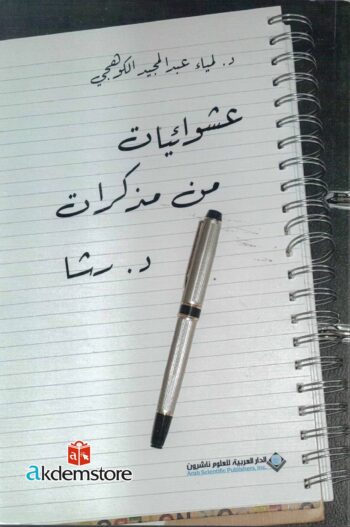 د. لمياء عبدالمجيد الكوهجي
عشوائيات
من مذكرات
د. رشا
الدار العربية للعلوم ناشرون
Arab Scientific Publishers, Inc.
akdemstore